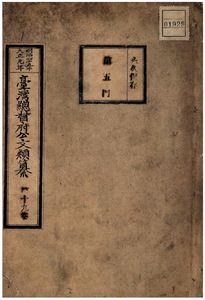 01925
永久保存
第五門
明治四十五年
大正元年
臺灣總督府公文類纂
十九卷